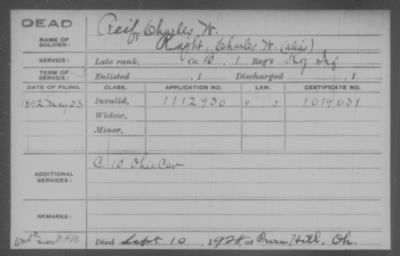 DEAD
NAME OF SOLDIER: Reif, Charles W.
Knight, Charles W. (alias)
SERVICE: Late rank, Co. B, 1 Reg't Inf
TERM OF SERVICE: Enlisted , 1 Discharged , 1
DATE OF FILING. CLASS. APPLICATION NO. LAW. CERTIFICATE NO.
1892 May 23 Invalid, 1112930 1014631
Widow,
Minor,
ADDITIONAL SERVICES: C 10 Ohio Cav
REMARKS:
Died Sept 10, 1928, at Hill, Oh.